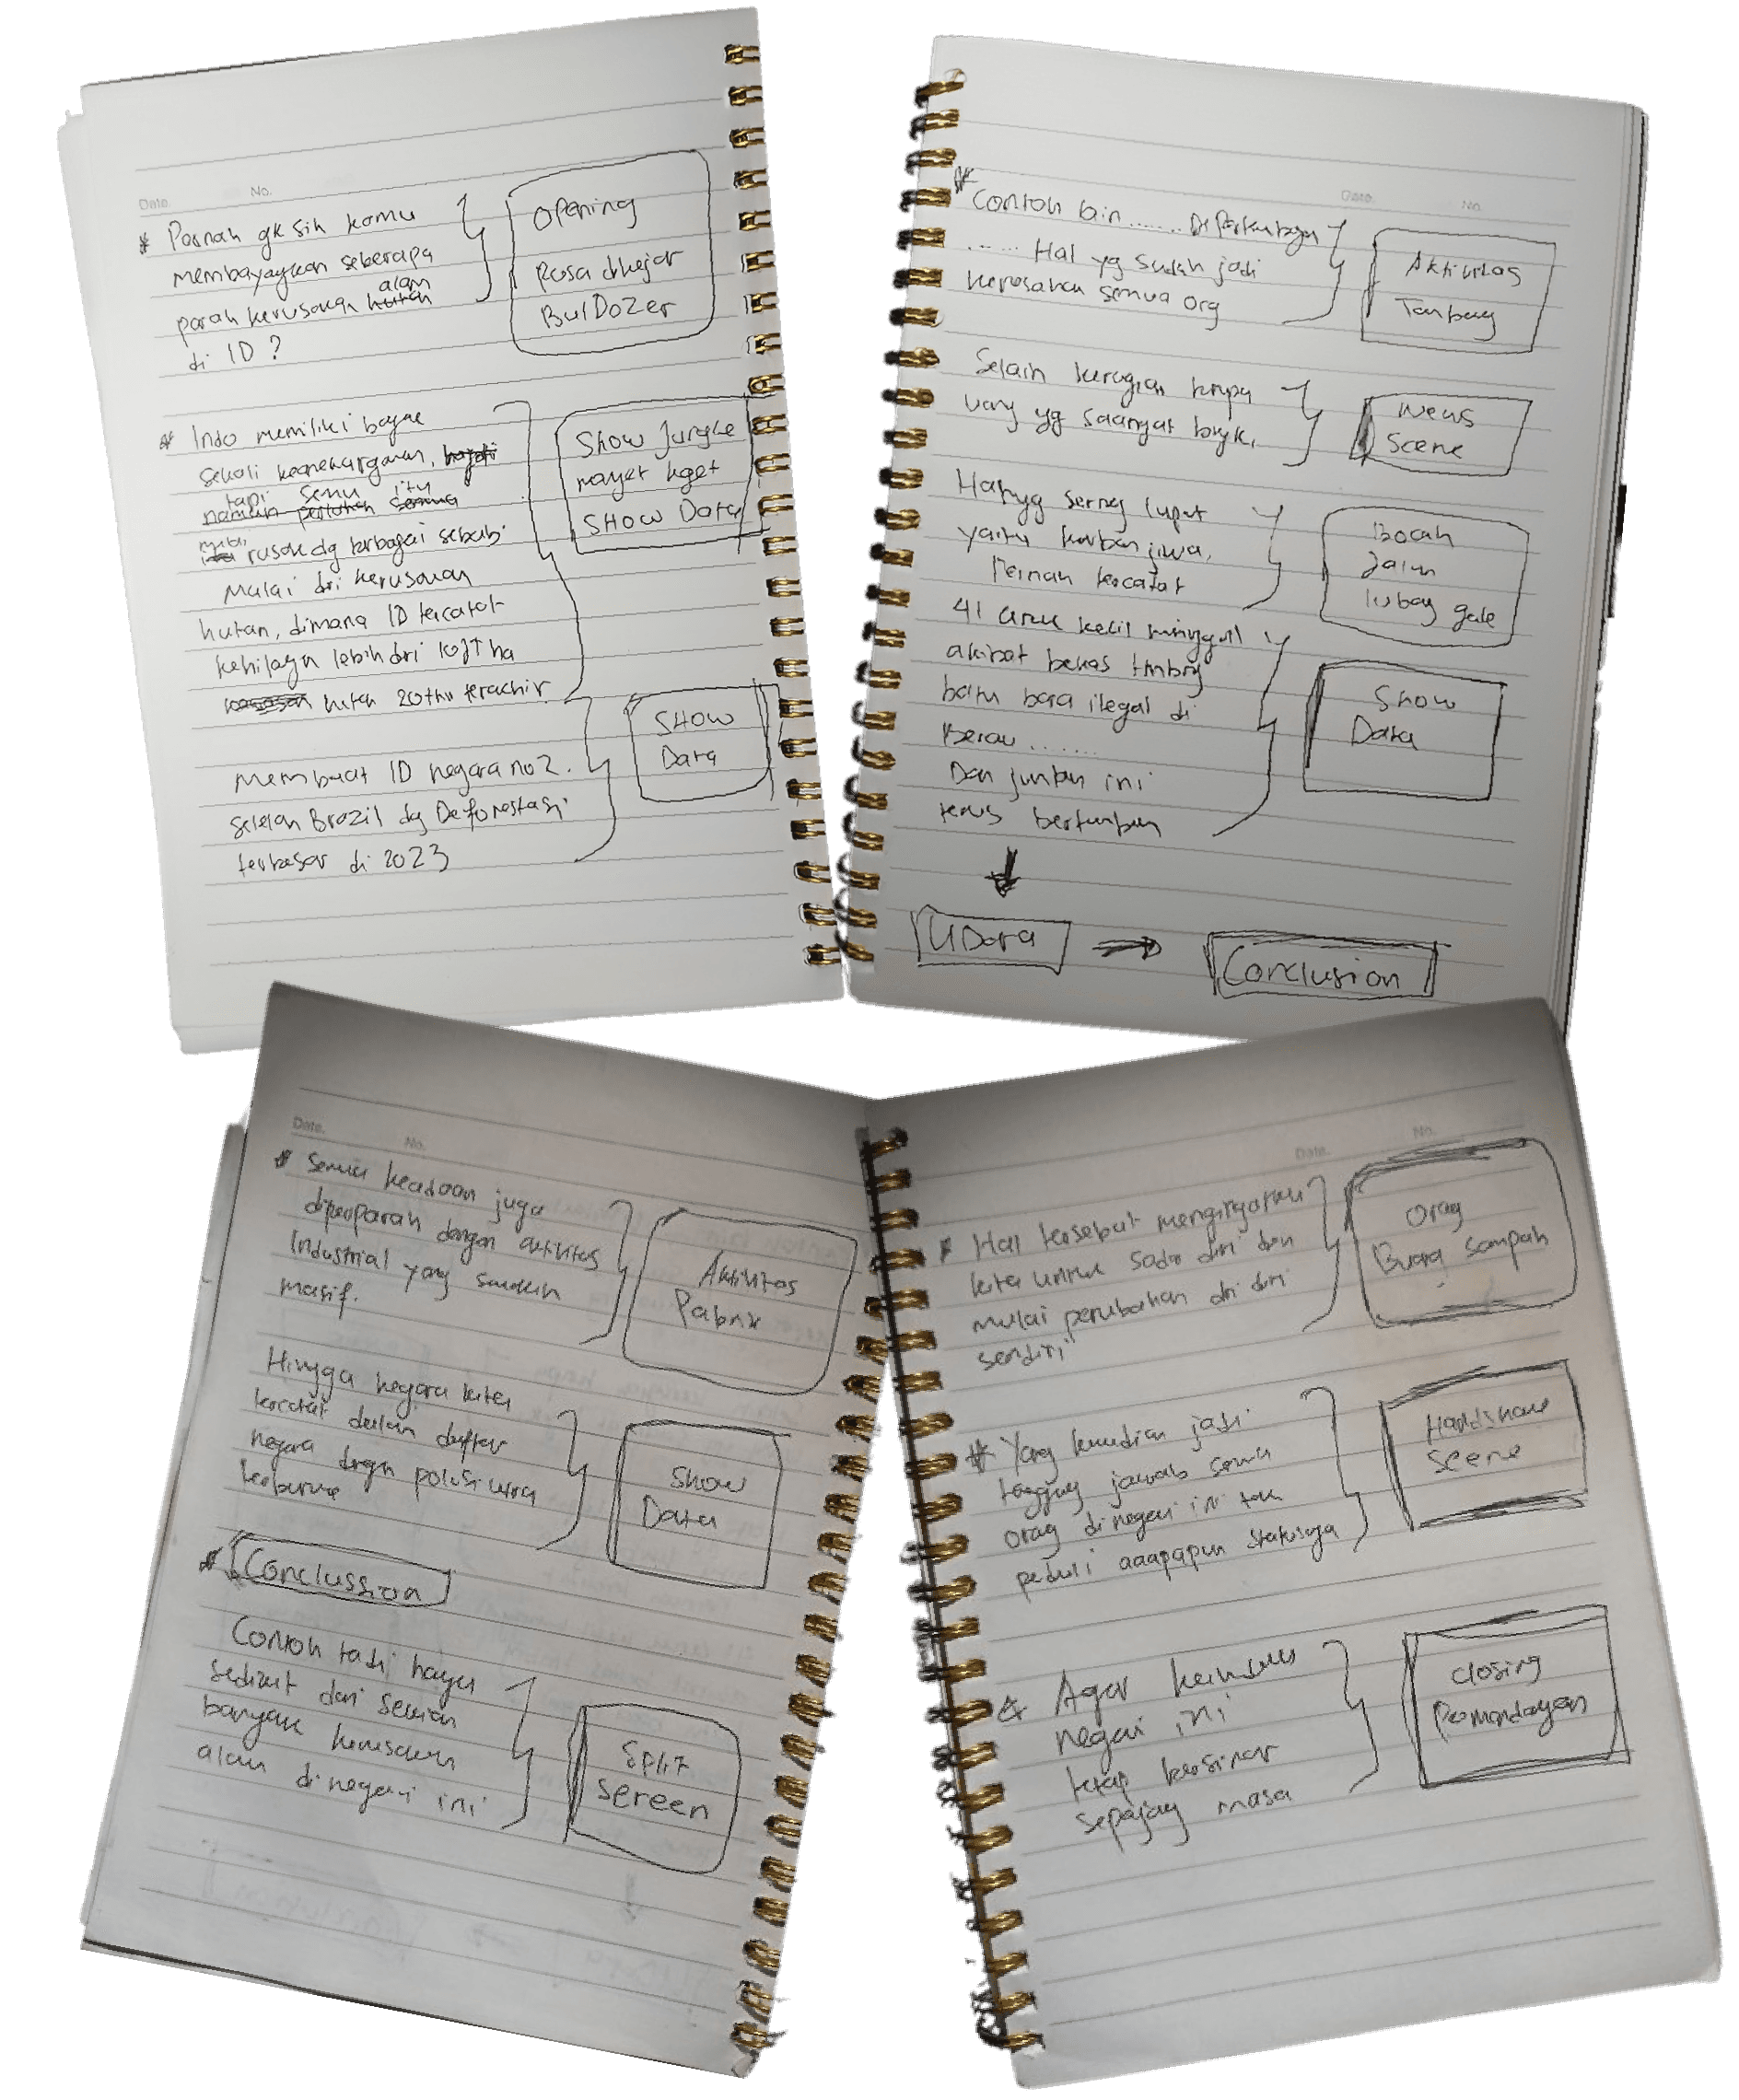 Date. No.
* Pernah gk sih kamu
membayagkan seberapa
parah kerusakan hutan alam
di ID ?
Opening
Rusa dikejar
BulDozer
* Indo memiliki bayak
sekali keanekargaman, hayati
tapi semu itu
namun perlahan semua
mulai rusak dg berbagai sebab
mulai dri kerusakan
hutan, dimana ID tercatat
kehilagn lebih dri 10JT ha
hutan 20thn terachir.
Show Jungle
mayet hget
SHOW Data
membuat ID negara no 2.
setelah Brazil dg Deforestasi
terbesar di 2023
SHOW
Data
Date. No.
* Contoh lain ....... Di Pertambagan
...... Hal yg sudah jadi
keresahan semua org
Aktivitas
Tambang
Selain kerugian brupa
uang yg saangat bnyk,
News
Scene
Hal yg sering luput
yaitu korban jiwa,
Pernah tercatat
Bocah
Jalan
lubag gale
41 anak kecil minggal
akibat bekas tmbng
batu bara ilegal di
Berau .......
Dan jumlah ini
terus bertambah
Show
Data
UDara
Conclusion
Date. No.
* Semua keadaan juga
diperparah dengan aktivitas
Industrial yang semakin
masif.
Aktivitas
Pabrik
Hingga negara kita
tercatat dalam daftar
negara dengn polusi udra
terburuk
Show
Data
* Conclussion
Contoh tadi hanya
sedikit dari sekian
banyak kerusakan
alam di negeri ini
Split
Screen
Date. No.
* Hal tersebut mengingatkan
kita untuk sadar diri dan
mulai perubahan dri diri
sendiri
Orag
Buang sampah
* Yang kemudian jadi
tanggung jawab semua
orag di negeri ini tak
peduli aaapapun statusnya
Handshake
scene
* Agar keindahan
negeri ini
tetap bersinar
sepajag masa
closing
Pemandagan